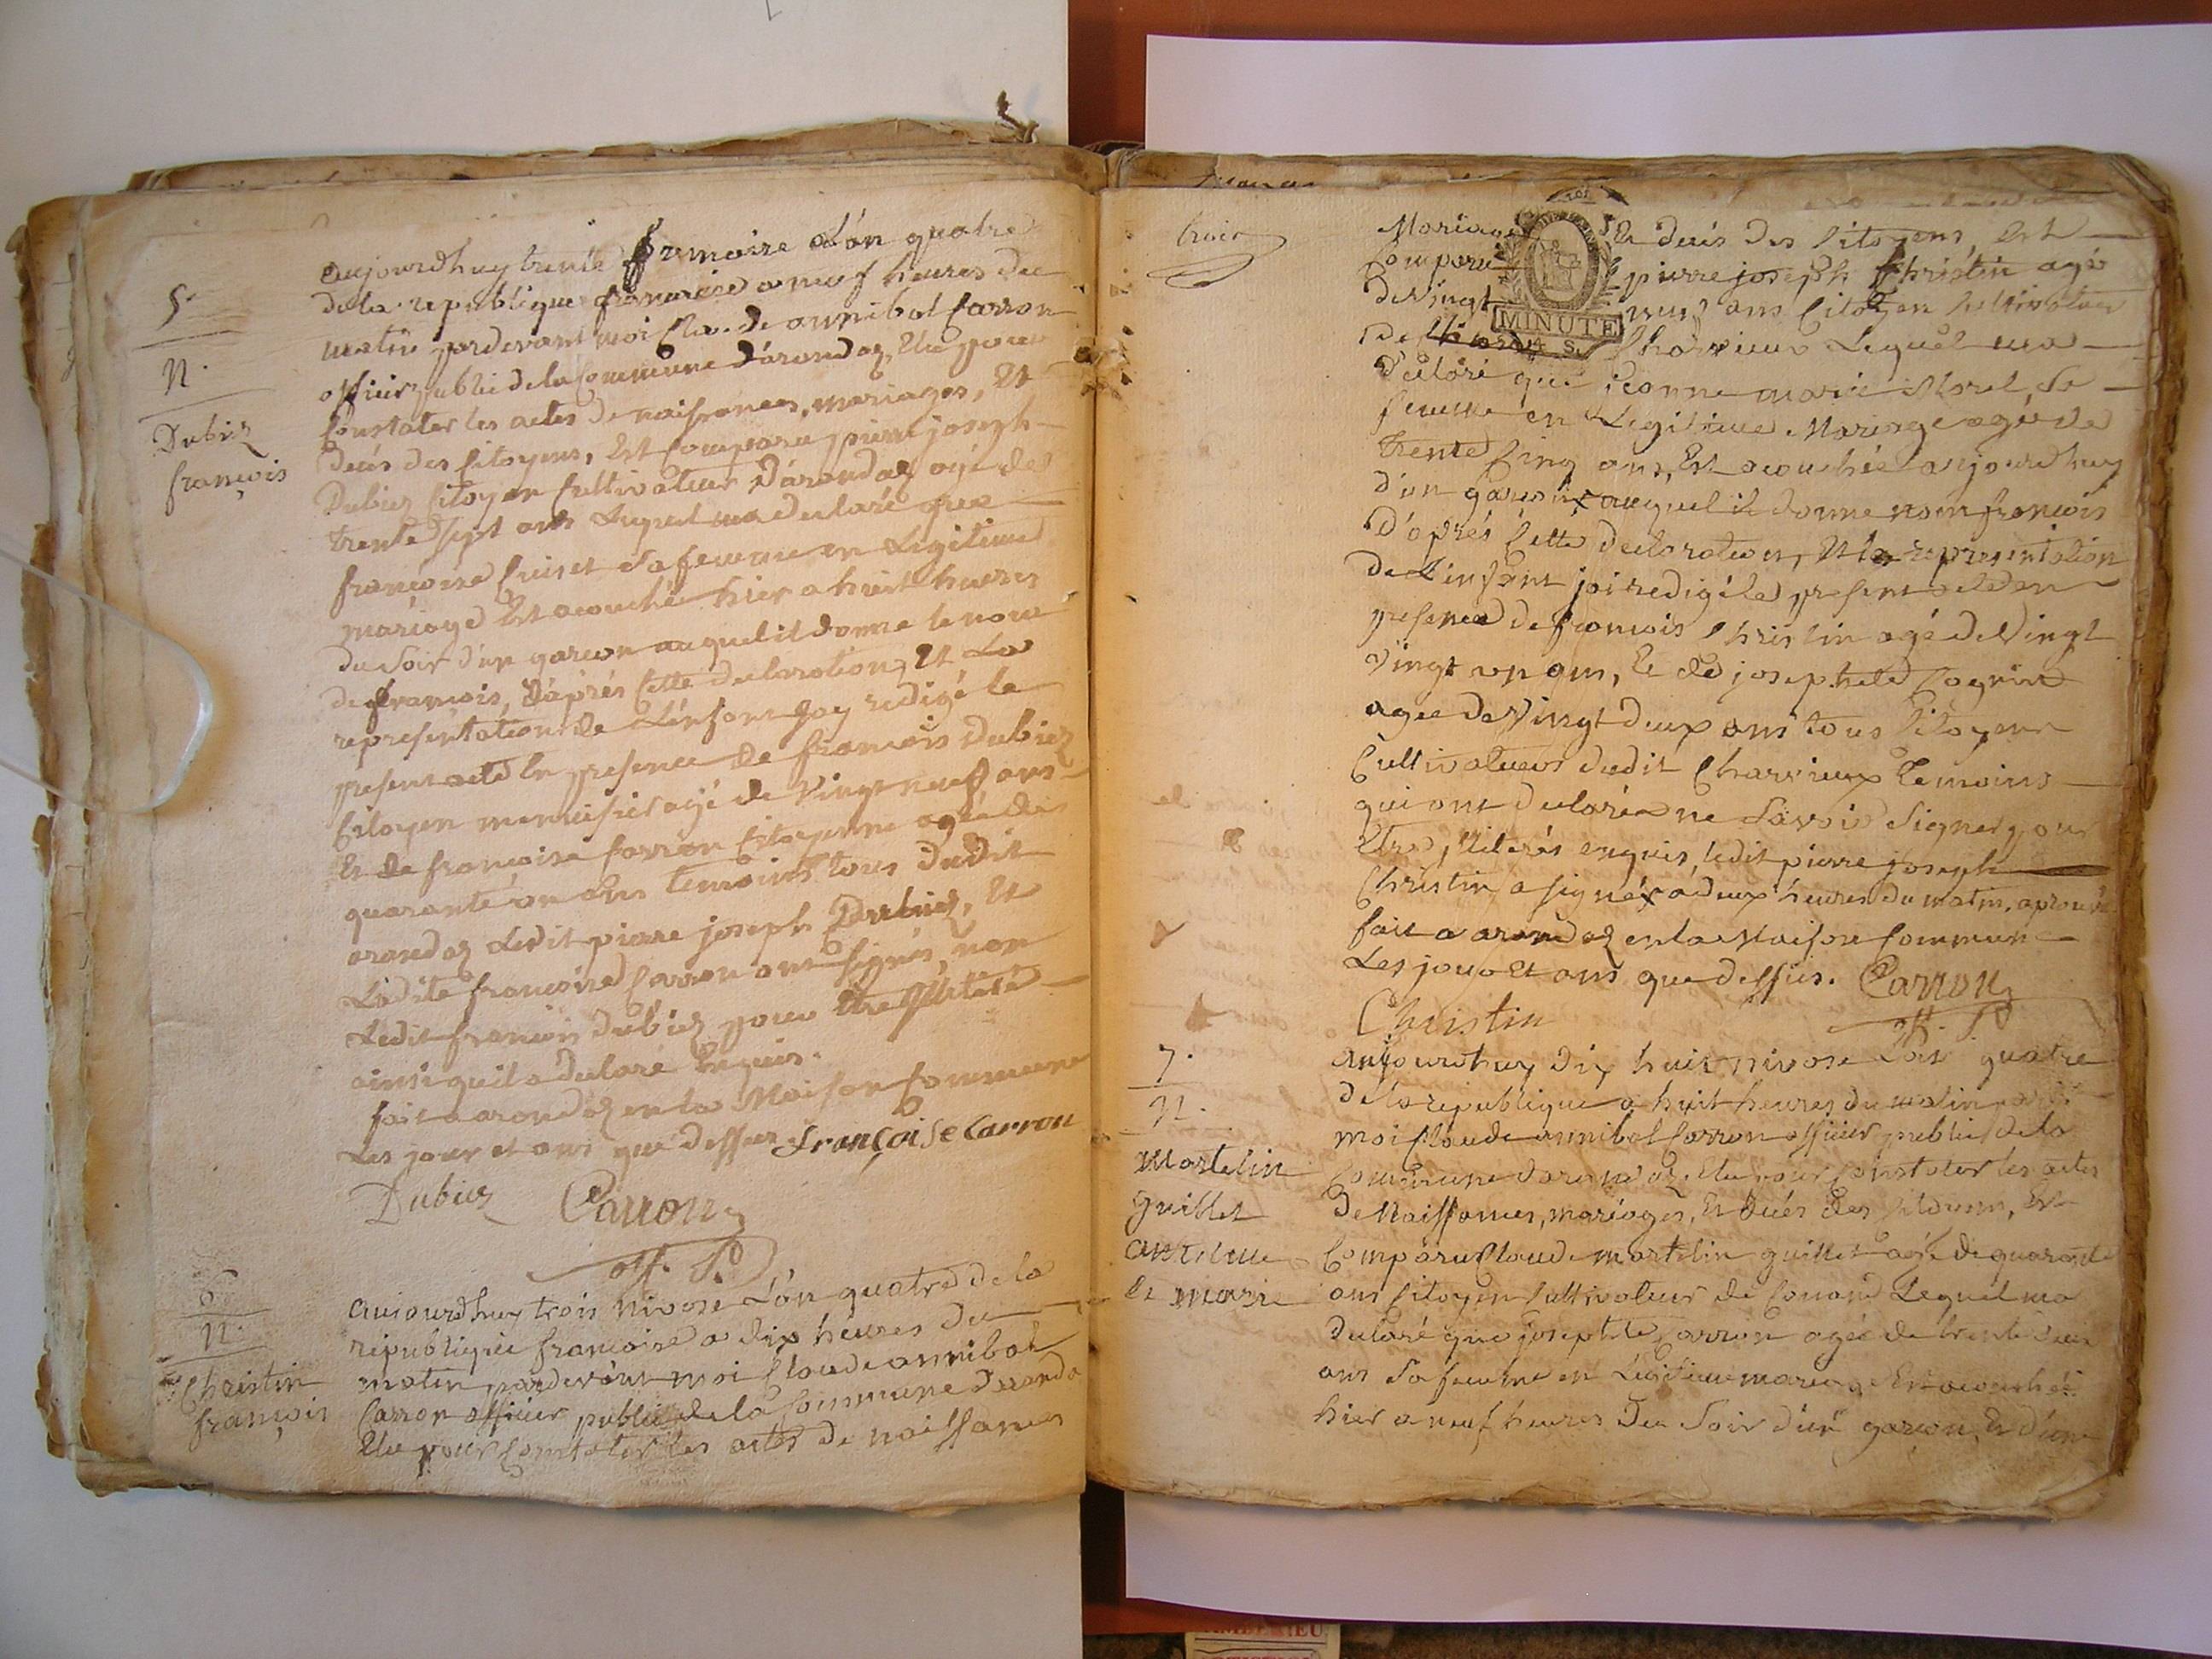 5.
N.
Dubiez
françois
aujourdhuy trente frimaire L'an quatre
de la republique francaise a neuf heures du
matin pardevant moi Cla. de annibal Carron
officier public de la Commune d'arandaz, Elu pour
Constater les actes de naissances, mariages, Et
deces des Citoyens, Est Comparu pierre joseph
Dubiez Citoyen Cultivateur d'arandaz agé de
trente sept ans Lequel ma declaré que
françoise Cuiset Sa femme en Legitime
mariage Est acouché hier a huit heures
du Soir d'un garcon auquel il donne le nom
de francois, d'aprés Cette declaration, Et La
representation de L'enfant Jay redigé le
present acte En presence de francois Dubiez
Citoyen menuisier agé de Vingt neuf ans
Et de françoise Carron Citoyenne agée de
quarante un ans temoins tous dudit
arandaz Ledit pierre joseph Dubiez, Et
Ladite francoise Carron ont signés, non
Ledit francois Dubiez pour Etre Illiteré
ainsi quil a declaré Enquis.
fait a arandaz en la Maison Commune
Les jour et ans que dessus françoise Carron
Dubiez Carron
off. P.
6
N.
Christin
françois
aujourdhuy trois nivose L'an quatre de la
republique francoise a dix heures du
matin pardevant moi Claude annibal
Carron officier public de la Commune Daranda
Elu pour Constater les actes de naissances
trois
MINUTE
4 S.
Mariages Et deces des Citoyens, Est
Comparu pierre joseph Christin agé
de Vingt neuf ans Citoyen Cultivateur
De Charvieux Lequel ma
declaré que jeanne marie Morel Sa
femme en Legitime Mariage agée de
trente Cinq ans, Est acouchée aujourdhuy
d'un garcon x auquel il donne nom francois
D'aprés Cette declaration, Et la representation
de L'enfant jai redigé le present acte en
presence de francois Christin agé de Vingt
Vingt un ans, Et de josephete Cognin
agee de Vingt deux ans tous Citoyens
Cultivateurs dudit Charvieux temoins
qui ont declarée ne Savoir Signer pour
Etre Illiterés enquis, ledit pierre joseph
Christin a signé x a deux heures du matin, aprouvé
fait a arandaz en la Maison Commun
Les jour Et ans que dessus. Carron
Christin off. P.
7.
N.
Martelin
Guillet
antelme
Et marie
aujourdhuy dix huit nivose L'an quatre
de la republique a huit heures du matin
moi Claude annibal Carron officier public de la
Commune darandaz. Elu pour Constater les actes
de Naissances, mariages, Et deces des Citoyens, Est
Comparu Claude martelin guillet agé de quarante
ans Citoyen Cultivateur de Conand Lequel ma
declaré que josephte Carron agée de trente deux
ans Sa femme en Legitime mariage Est acouchée
hier a neuf heures Du Soir d'un garcon, Et d'une